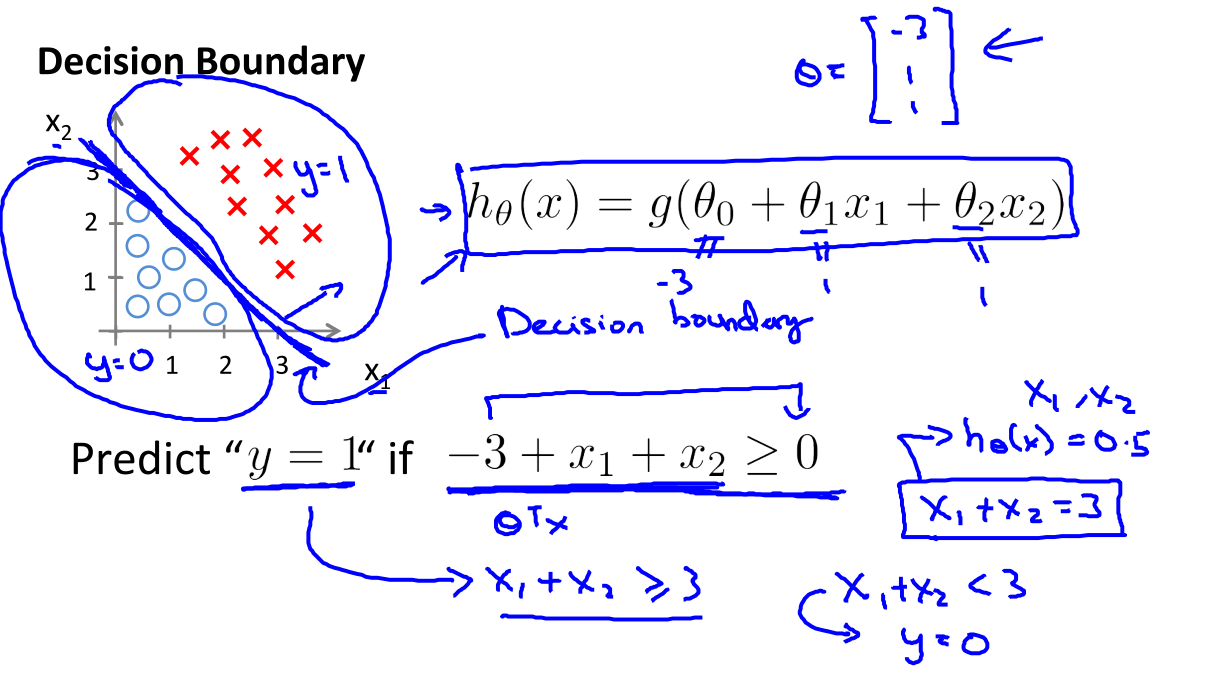 Decision Boundary
θ = [-3 1 1]
x₂
3
2
1
y=1
y=0
1 2 3
x₁
hθ(x) = g(θ₀ + θ₁x₁ + θ₂x₂)
-3 1 1
Decision boundary
Predict “y = 1“ if −3 + x₁ + x₂ ≥ 0
θᵀx
x₁ + x₂ ≥ 3
x₁, x₂
hθ(x) = 0.5
x₁ + x₂ = 3
x₁ + x₂ < 3
y = 0